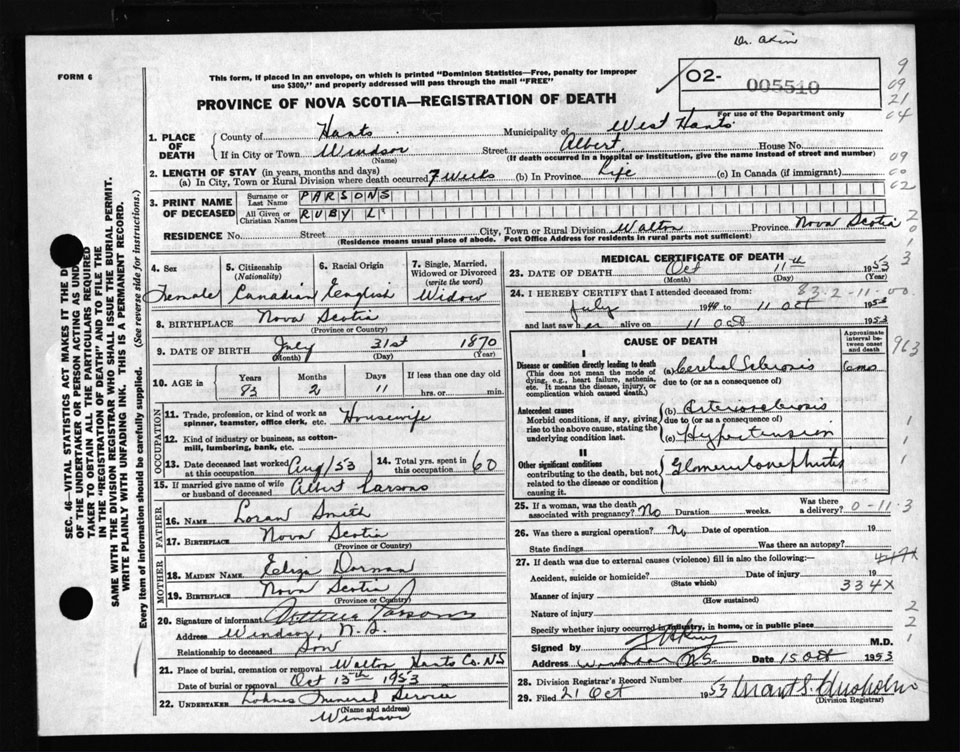 Dr. Akin
FORM 6
This form, if placed in an envelope, on which is printed "Dominion Statistics—Free, penalty for improper
use $300," and properly addressed will pass through the mail "FREE"
PROVINCE OF NOVA SCOTIA—REGISTRATION OF DEATH
02- 005510
For use of the Department only
9
09
21
04
1. PLACE OF DEATH
County of Hants Municipality of West Hants
If in City or Town Windsor (Name) Street Albert House No.
(If death occurred in a hospital or institution, give the name instead of street and number)
2. LENGTH OF STAY (in years, months and days)
(a) In City, Town or Rural Division where death occurred 7 Weeks (b) In Province Life (c) In Canada (if immigrant)
09
00
02
3. PRINT NAME OF DECEASED
Surname or Last Name PARSONS
All Given or Christian Names RUBY L
RESIDENCE No. Street City, Town or Rural Division Walton Province Nova Scotia
(Residence means usual place of abode. Post Office Address for residents in rural parts not sufficient)
2
0
1
3
4. Sex
Female
5. Citizenship (Nationality)
Canadian
6. Racial Origin
English
7. Single, Married, Widowed or Divorced (write the word)
Widow
8. BIRTHPLACE Nova Scotia
(Province or Country)
9. DATE OF BIRTH July 31st 1870
(Month) (Day) (Year)
10. AGE in Years Months Days If less than one day old
83 2 11 hrs. or min.
OCCUPATION
11. Trade, profession, or kind of work as spinner, teamster, office clerk, etc. Housewife
12. Kind of industry or business, as cotton-mill, lumbering, bank, etc.
13. Date deceased last worked at this occupation Aug/53
14. Total yrs. spent in this occupation 60
15. If married give name of wife or husband of deceased Albert Parsons
FATHER
16. NAME Loran Smith
17. BIRTHPLACE Nova Scotia
(Province or Country)
MOTHER
18. MAIDEN NAME Eliza Dorman
19. BIRTHPLACE Nova Scotia
(Province or Country)
20. Signature of informant Parsons
Address Windsor, N.S.
Relationship to deceased Son
21. Place of burial, cremation or removal Walton Hants Co. NS
Date of burial or removal Oct 13th 1953
22. UNDERTAKER Lohnes Funeral Service
(Name and address)
Windsor
MEDICAL CERTIFICATE OF DEATH
23. DATE OF DEATH Oct 11th 1953
(Month) (Day) (Year)
83.2-11-00
24. I HEREBY CERTIFY that I attended deceased from:
July 1948 to 11 Oct 1953
and last saw her alive on 11 Oct 1953
CAUSE OF DEATH
Approximate interval between onset and death
963
I
Disease or condition directly leading to death
(This does not mean the mode of dying, e.g., heart failure, asthenia, etc. It means the disease, injury, or complication which caused death.)
(a) Cerebral Sclerosis 6 mos
due to (or as a consequence of)
Antecedent causes
Morbid conditions, if any, giving rise to the above cause, stating the underlying condition last.
(b) Arteriosclerosis
due to (or as a consequence of)
(c) Hypertension
II
Other significant conditions
contributing to the death, but not related to the disease or condition causing it.
Glomerulonephritis
1
1
1
25. If a woman, was the death associated with pregnancy? No Duration weeks. Was there a delivery? 0-11-3
26. Was there a surgical operation? No Date of operation 19
State findings Was there an autopsy?
27. If death was due to external causes (violence) fill in also the following:
Accident, suicide or homicide? (State which) Date of injury 19
334X
Manner of injury
(How sustained)
Nature of injury
Specify whether injury occurred in industry, in home, or in public place
2
2
1
Signed by M.D.
Address Windsor NS. Date 15 Oct 1953
28. Division Registrar's Record Number
29. Filed 21 Oct 1953 Grant S. Chisholm
(Division Registrar)
SEC. 46—VITAL STATISTICS ACT MAKES IT THE
OF THE UNDERTAKER OR PERSON ACTING AS UND
TAKER TO OBTAIN ALL THE PARTICULARS REQUIRED
IN THE "REGISTRATION OF DEATH" AND TO FILE THE
SAME WITH THE DIVISION REGISTRAR WHO SHALL ISSUE THE BURIAL PERMIT.
WRITE PLAINLY WITH UNFADING INK. THIS IS A PERMANENT RECORD.
Every item of information should be carefully supplied. (See reverse side for instructions.)